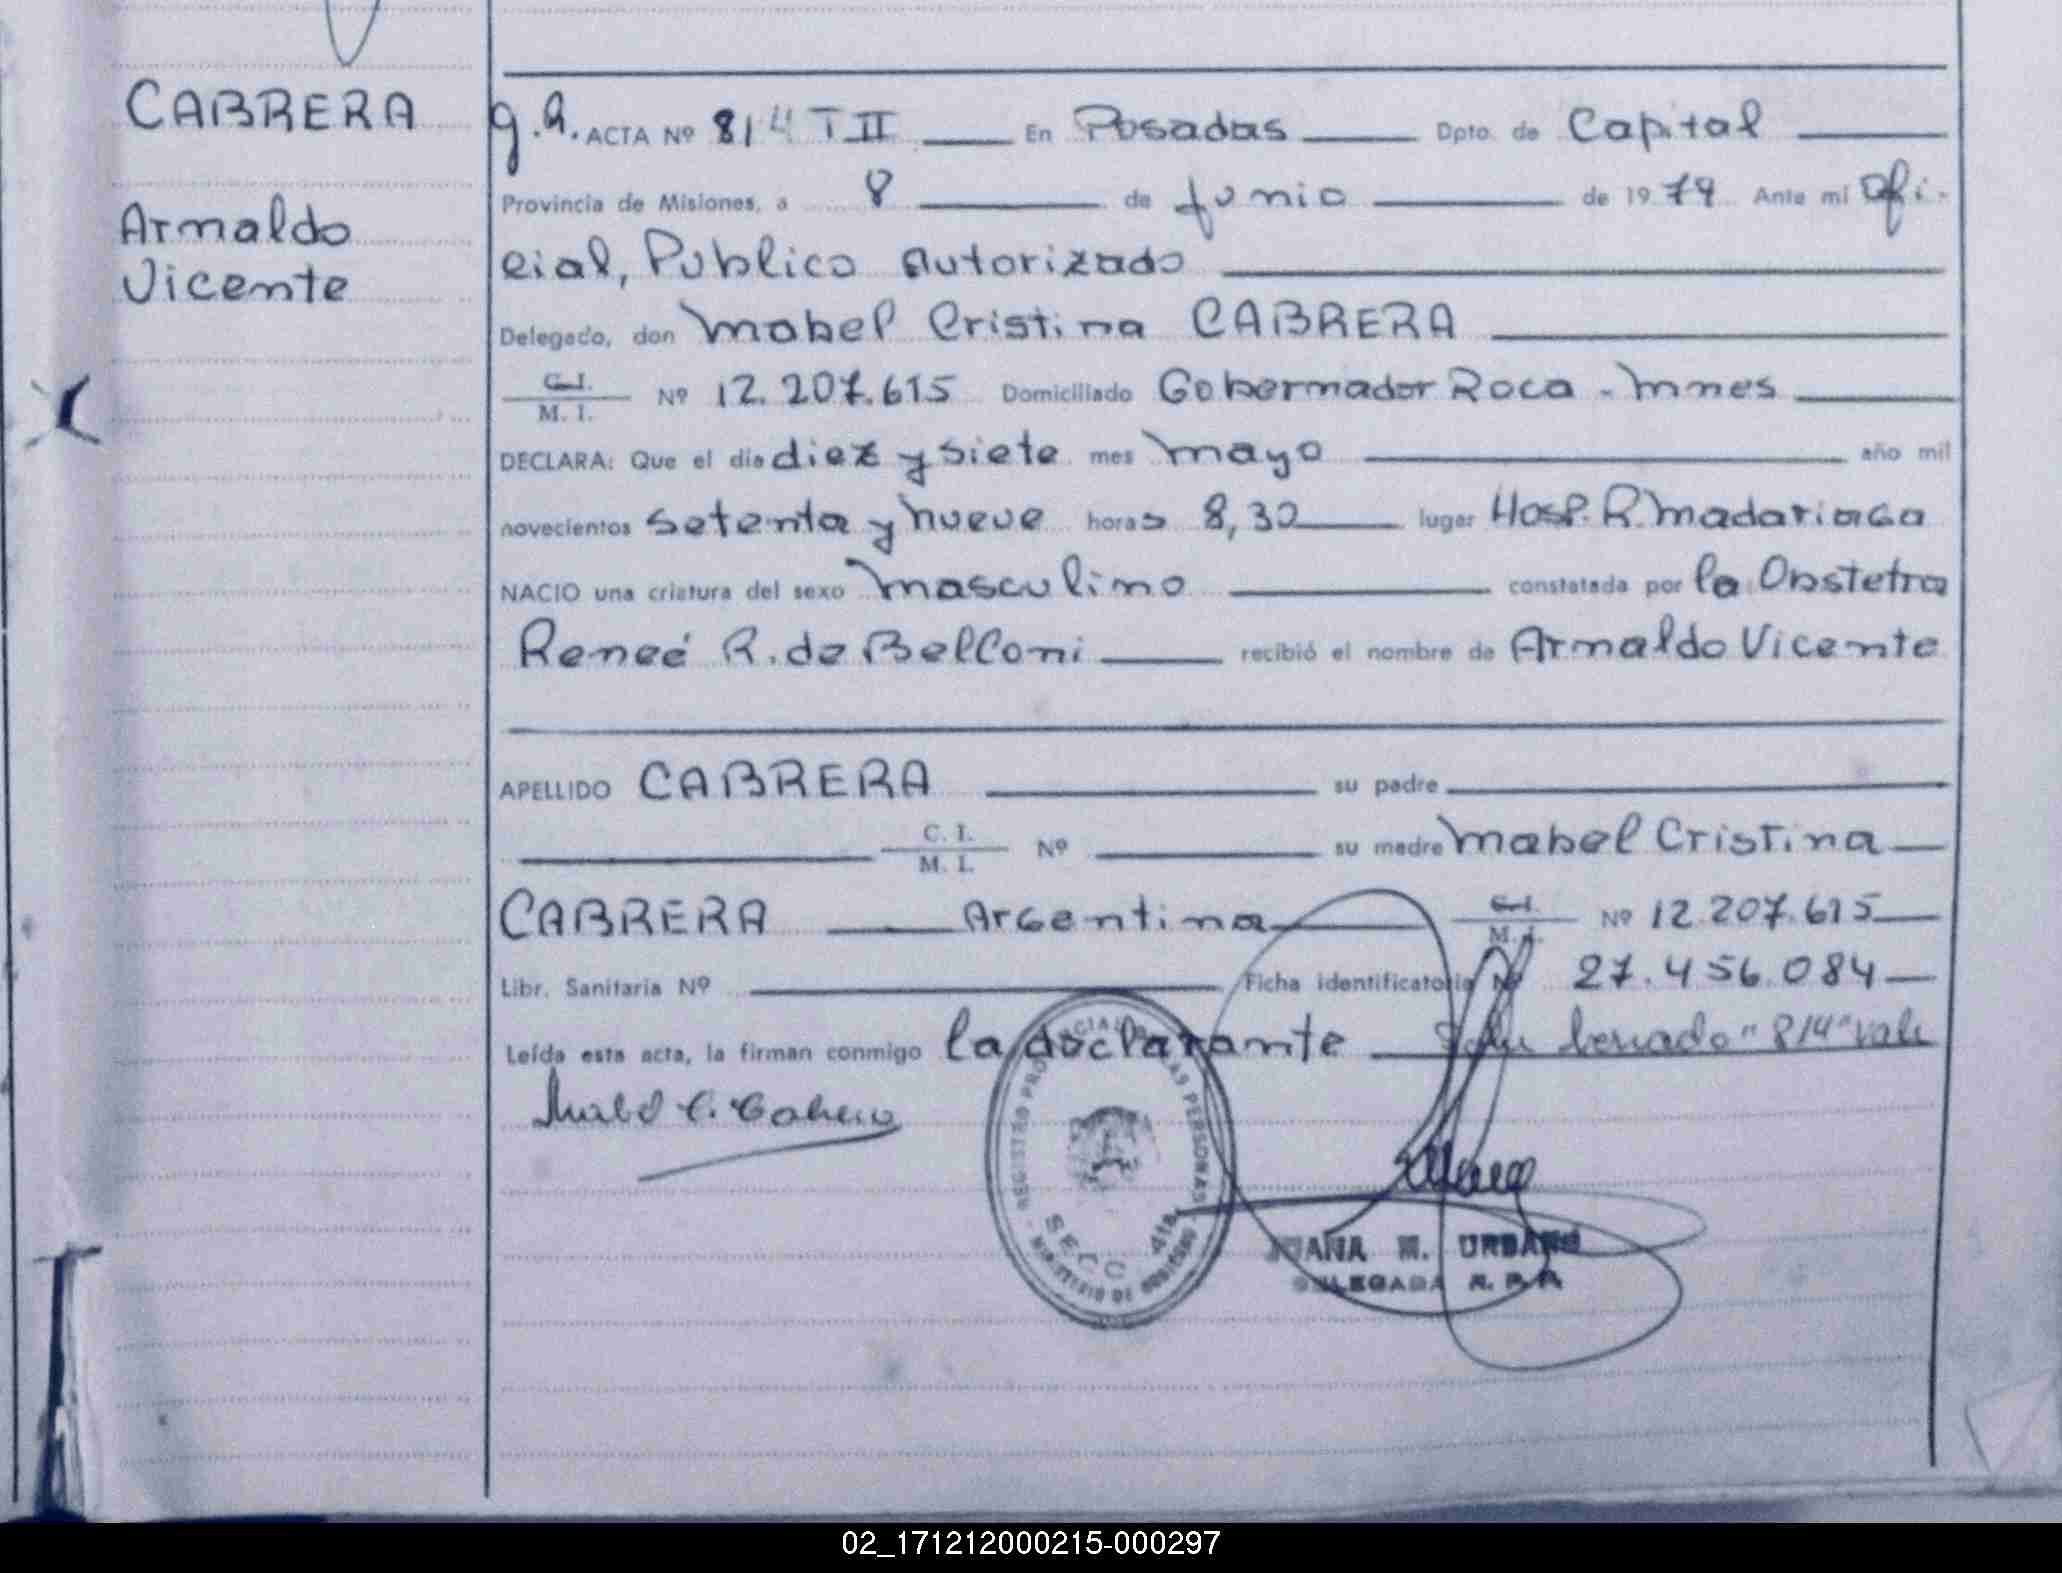 CABRERA
Arnaldo
Vicente
g.A. ACTA Nº 814 T II En Posadas Dpto. de Capital
Provincia de Misiones, a 8 de Junio de 1979 Ante mi Ofi-
cial, Publico Autorizado
Delegado, don Mabel Cristina CABRERA
C.I.
M. I. Nº 12.207.615 Domiciliado Gobernador Roca - Mnes
DECLARA: Que el día diez y siete mes Mayo año mil
novecientos setenta y nueve horas 8,30 lugar Hosp. R. Madariaga
NACIO una criatura del sexo Masculino constatada por la Obstetra
Reneé R. de Belloni recibió el nombre de Arnaldo Vicente
APELLIDO CABRERA su padre
C. I.
M. I. Nº su madre Mabel Cristina
CABRERA Argentina C.I.
M. I. Nº 12.207.615
Libr. Sanitaria Nº Ficha identificatoria Nº 27.456.084
Leída esta acta, la firman conmigo la declarante "814" vale
Mabel C. Cabrera
REGISTRO PROVINCIAL DE LAS PERSONAS
SECC 4ta.
JUANA M. URBANO
DELEGADA R. P. P.
02_171212000215-000297